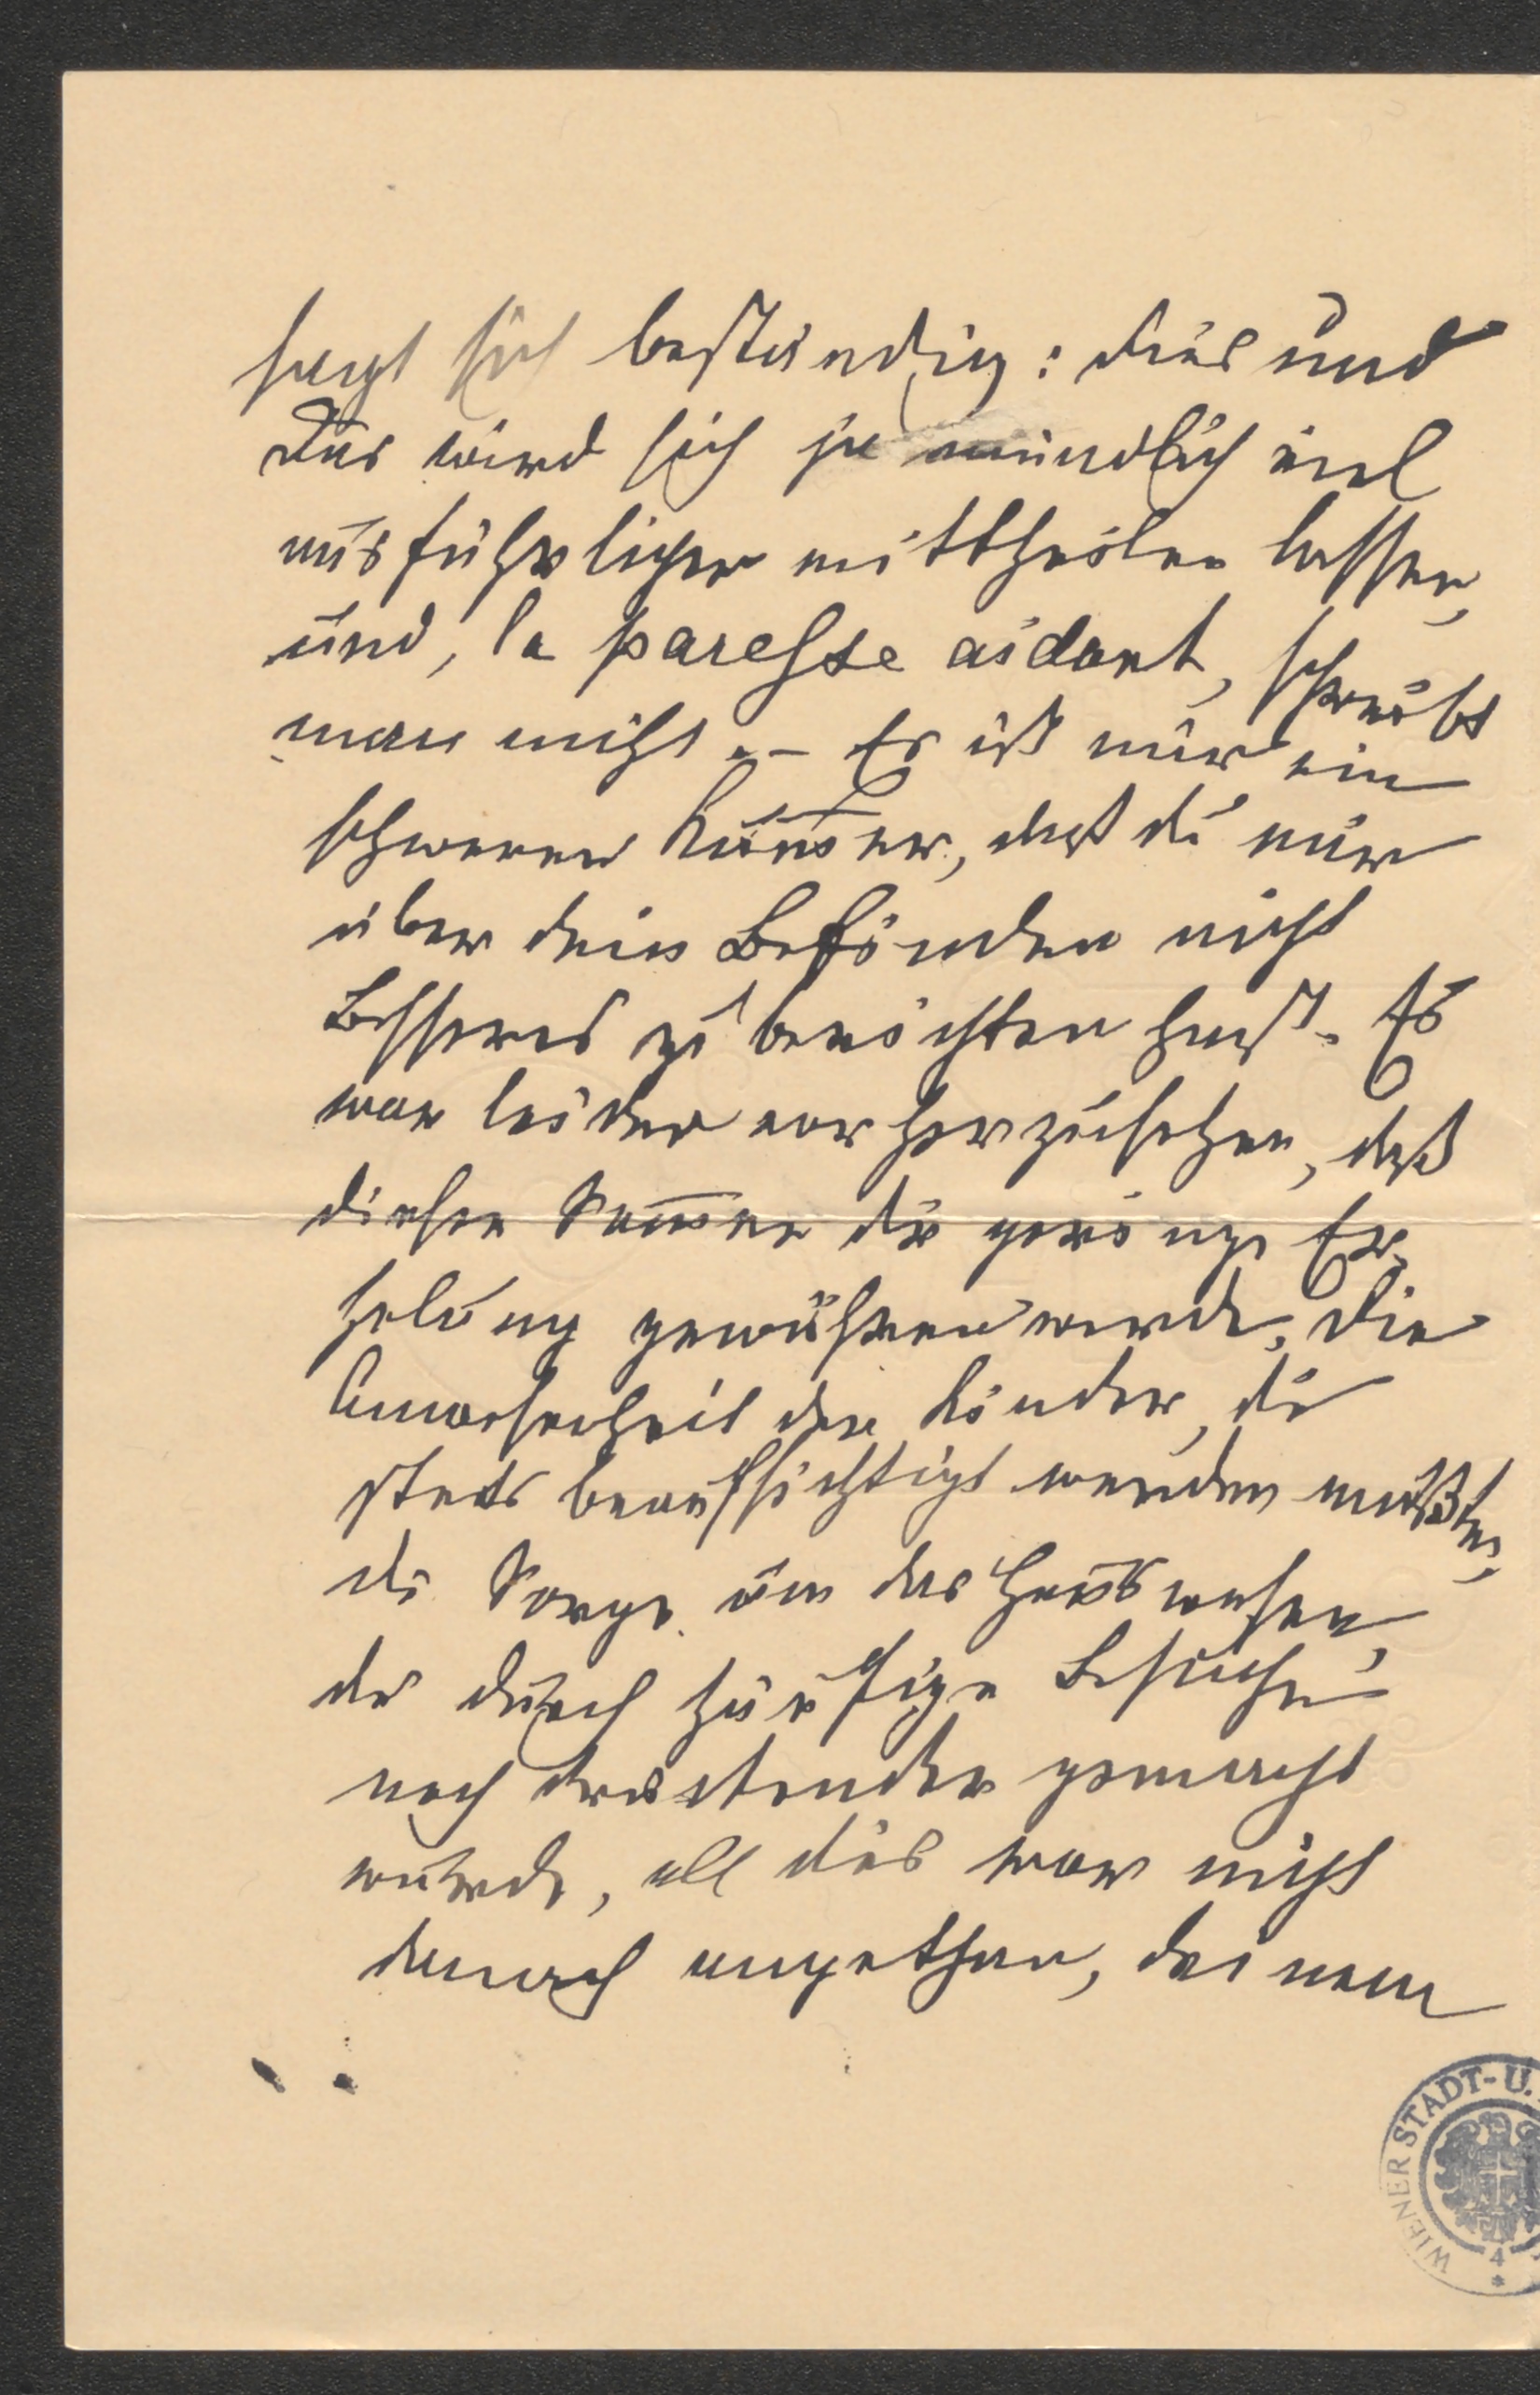 sagt sich beständig: dies und
das wird sich ja mündlich viel
ausführlicher mittheilen lassen,
und, la paresse aidant, schreibt
man nicht. – Es ist mir ein
schwerer Kum̅er, daß du mir
über dein Befinden nicht
Besseres zu berichten hast. Es
war leider vorherzusehen, daß
dieser Som̅er dir geringe Er-
holung gewähren werde. Die
Anwesenheit der Kinder, die
stets beaufsichtigt werden mußten,
die Sorge um das Hauswesen,
die durch häufige Besuche
noch drückender gemacht
wurde, all dies war nicht
danach angethan, deinem
WIENER STADT-U.
4